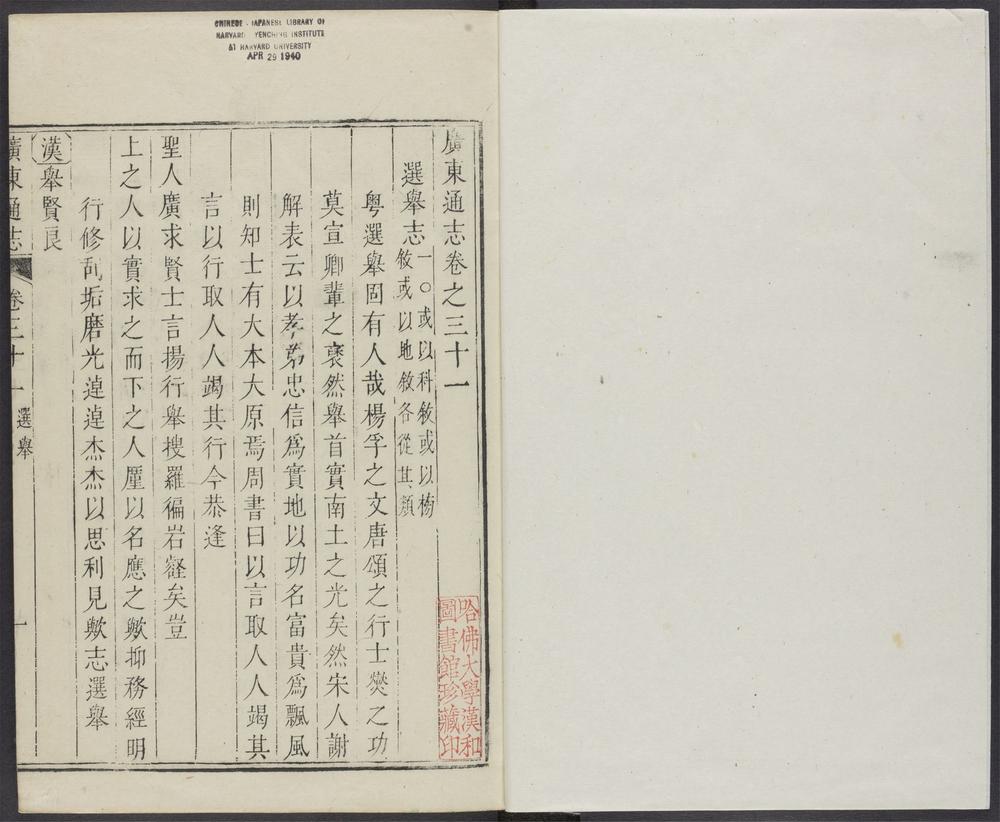 CHINESE - JAPANESE LIBRARY OF
HARVARD YENCHING INSTITUTE
AT HARVARD UNIVERSITY
APR 29 1940
廣東通志卷之三十一
選舉志一〇或以科敘或以榜
敘或以地敘各從其類
粤選舉固有人哉楊孚之文唐頌之行士燮之功
莫宣卿輩之襃然舉首實南土之光矣然宋人謝
解表云以孝弟忠信爲實地以功名富貴爲飄風
則知士有大本大原焉周書曰以言取人人竭其
言以行取人人竭其行今恭逢
聖人廣求賢士言揚行舉搜羅徧岩壑矣豈
上之人以實求之而下之人厪以名應之歟抑務經明
行修刮垢磨光逴逴杰杰以思利見歟志選舉
漢舉賢良
廣東通志
卷三十一
選舉
一
哈佛大學漢和
圖書館珍藏印